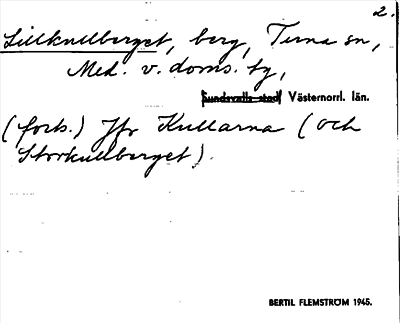 2.
Lillkullberget, berg, Tuna sn,
Med. v. doms. tg,
Sundsvalls stad Västernorrl. län.
(forts.) Jfr Kullarna (och
Storkullberget).
BERTIL FLEMSTRÖM 1945.